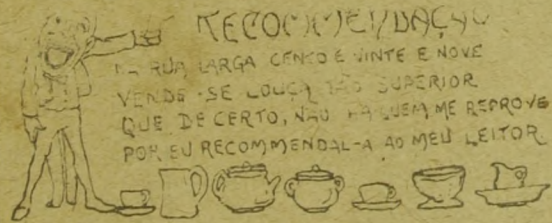 RECOMMENDAÇÃO
NA RUA LARGA CENTO E VINTE E NOVE
VENDE-SE LOUÇA TÃO SUPERIOR
QUE DE CERTO, NÃO HA QUEM ME REPROVE
POR EU RECOMMENDAL-A AO MEU LEITOR